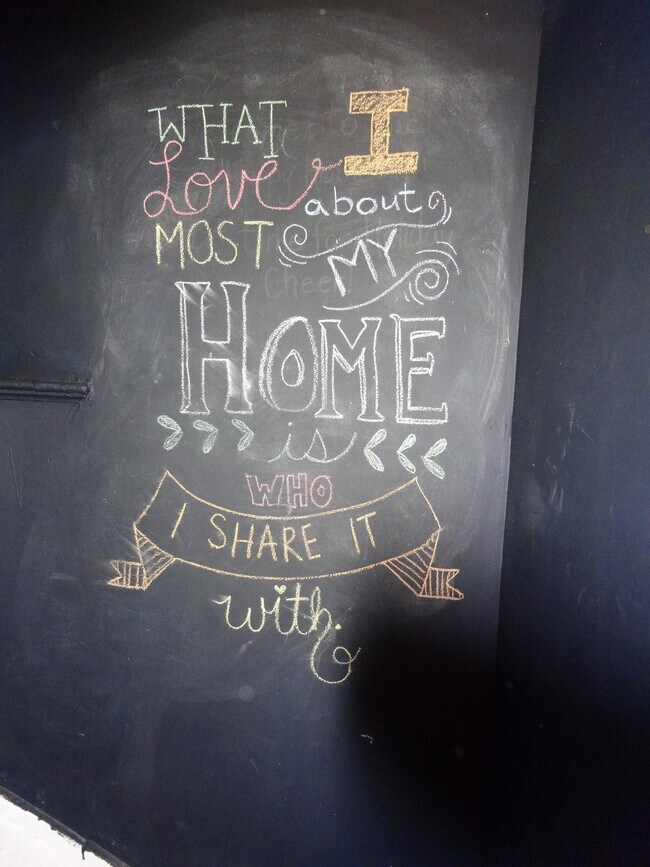 WHAT I
Love about
MOST MY
HOME
is
WHO
I SHARE IT
with.